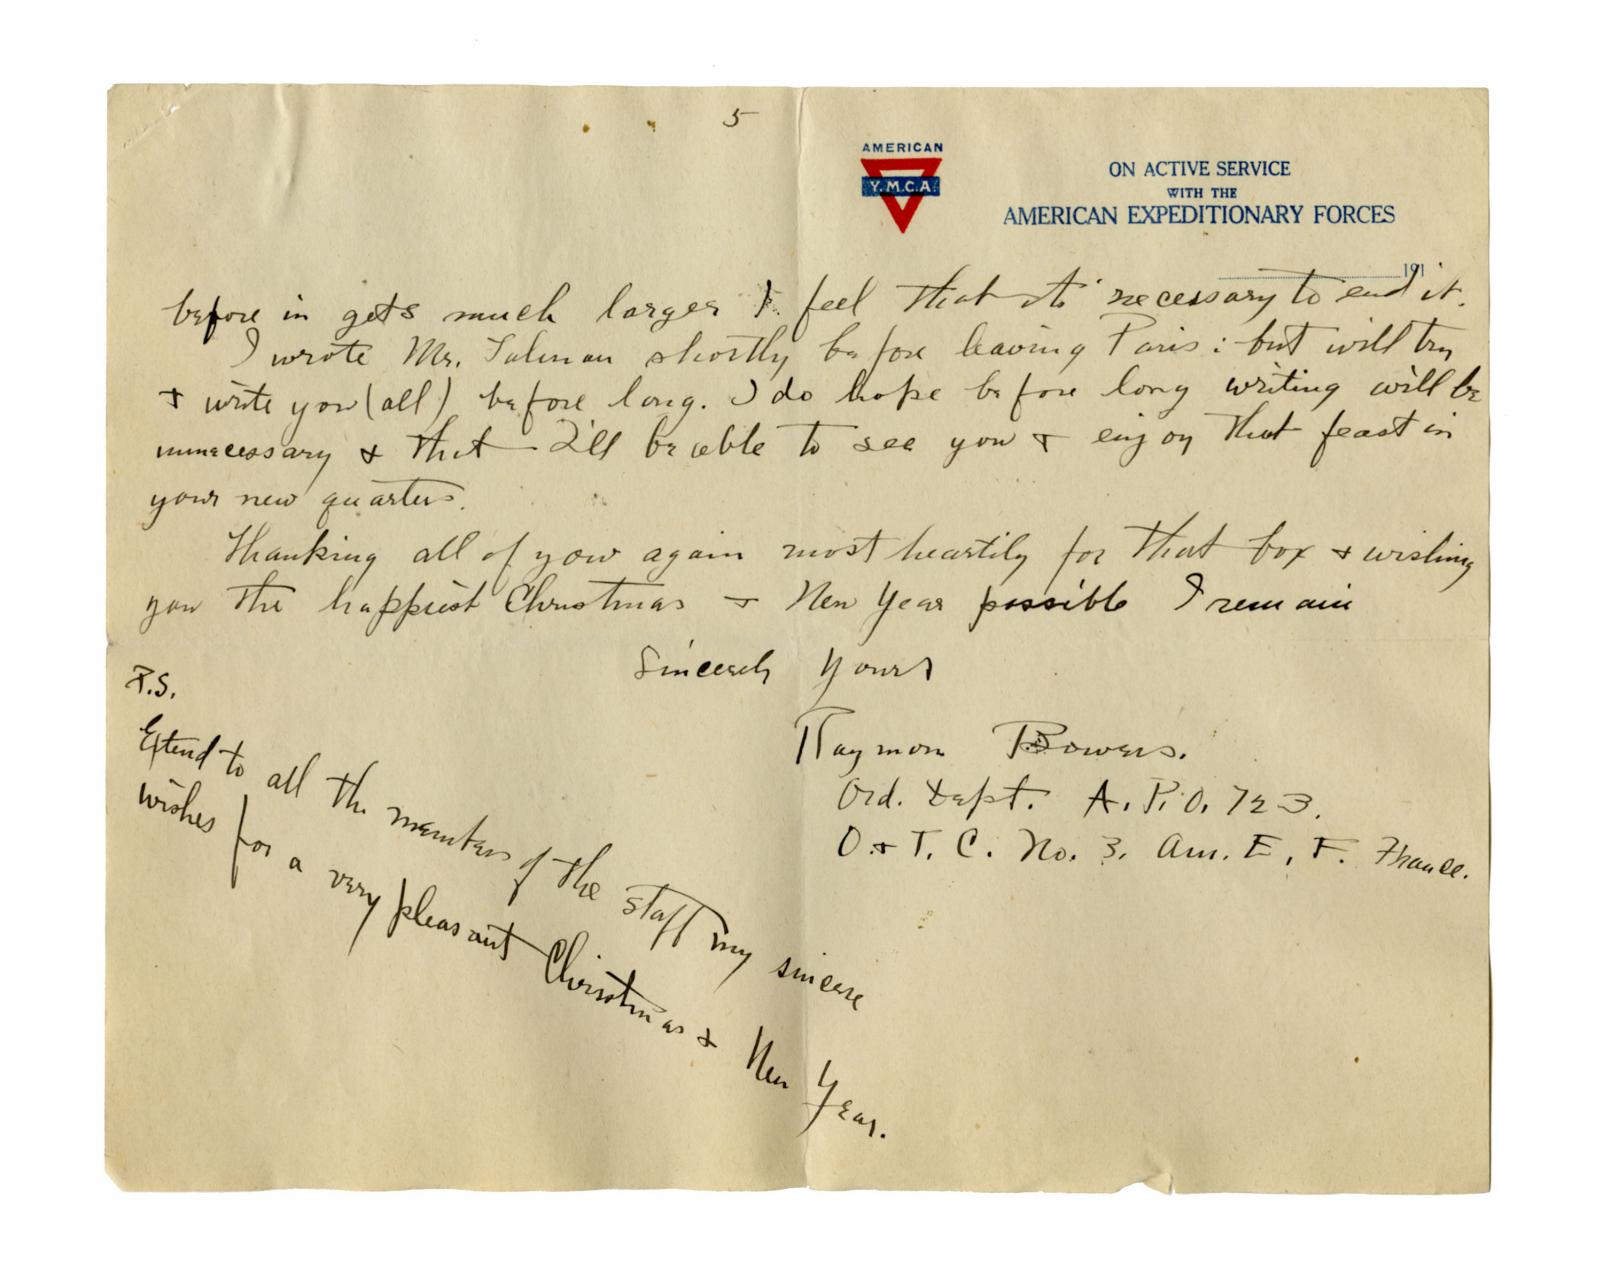 5
AMERICAN
Y.M.C.A.
ON ACTIVE SERVICE
WITH THE
AMERICAN EXPEDITIONARY FORCES
191
before in gets much larger I feel that its necessary to end it.
I wrote Mr. Talman shortly before leaving Paris; but will try
& write you (all) before long. I do hope before long writing will be
unnecessary & that I'll be able to see you & enjoy that feast in
your new quarters.
Thanking all of you again most heartily for that box & wishing
you the happiest Christmas & New Year possible I remain
Sincerely Yours
Raymon Bowers.
Ord. Dept. A.P.O. 723.
O. & T. C. No. 3. Am. E. F. France.
P.S.
Extend to all the members of the staff my sincere
wishes for a very pleasant Christmas & New Year.